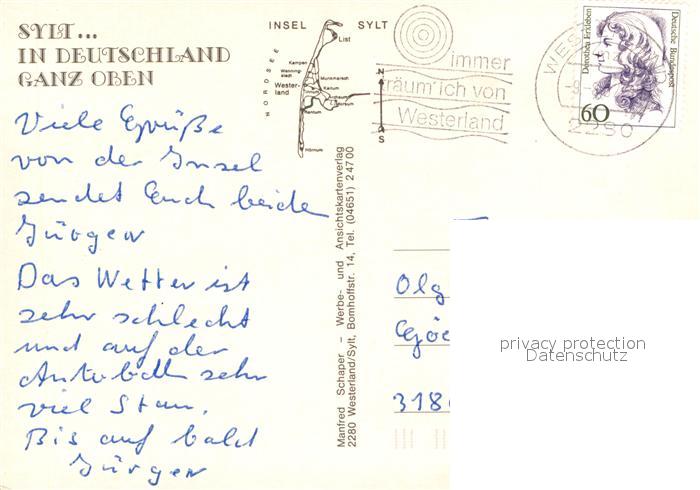 SYLT...
IN DEUTSCHLAND
GANZ OBEN
Viele Grüße
von der Insel
sendet Euch beiden
Jürgen
Das Wetter ist
sehr schlecht
und auf der
Autobahn sehr
viel Stau.
Bis auf bald
Jürgen
INSEL SYLT
NORDSEE
List
Kampen
Wenningstedt
Munkmarsch
Westerland
Keitum
Rantum
Hörnum
N
S
immer
träum' ich von
Westerland
WES
2280
Dorothea Erxleben
Deutsche Bundespost
60
Manfred Schaper – Werbe- und Ansichtskartenverlag
2280 Westerland/Sylt, Bomhoffstr. 14, Tel. (04651) 24700
Olg
Gö
318
privacy protection
Datenschutz